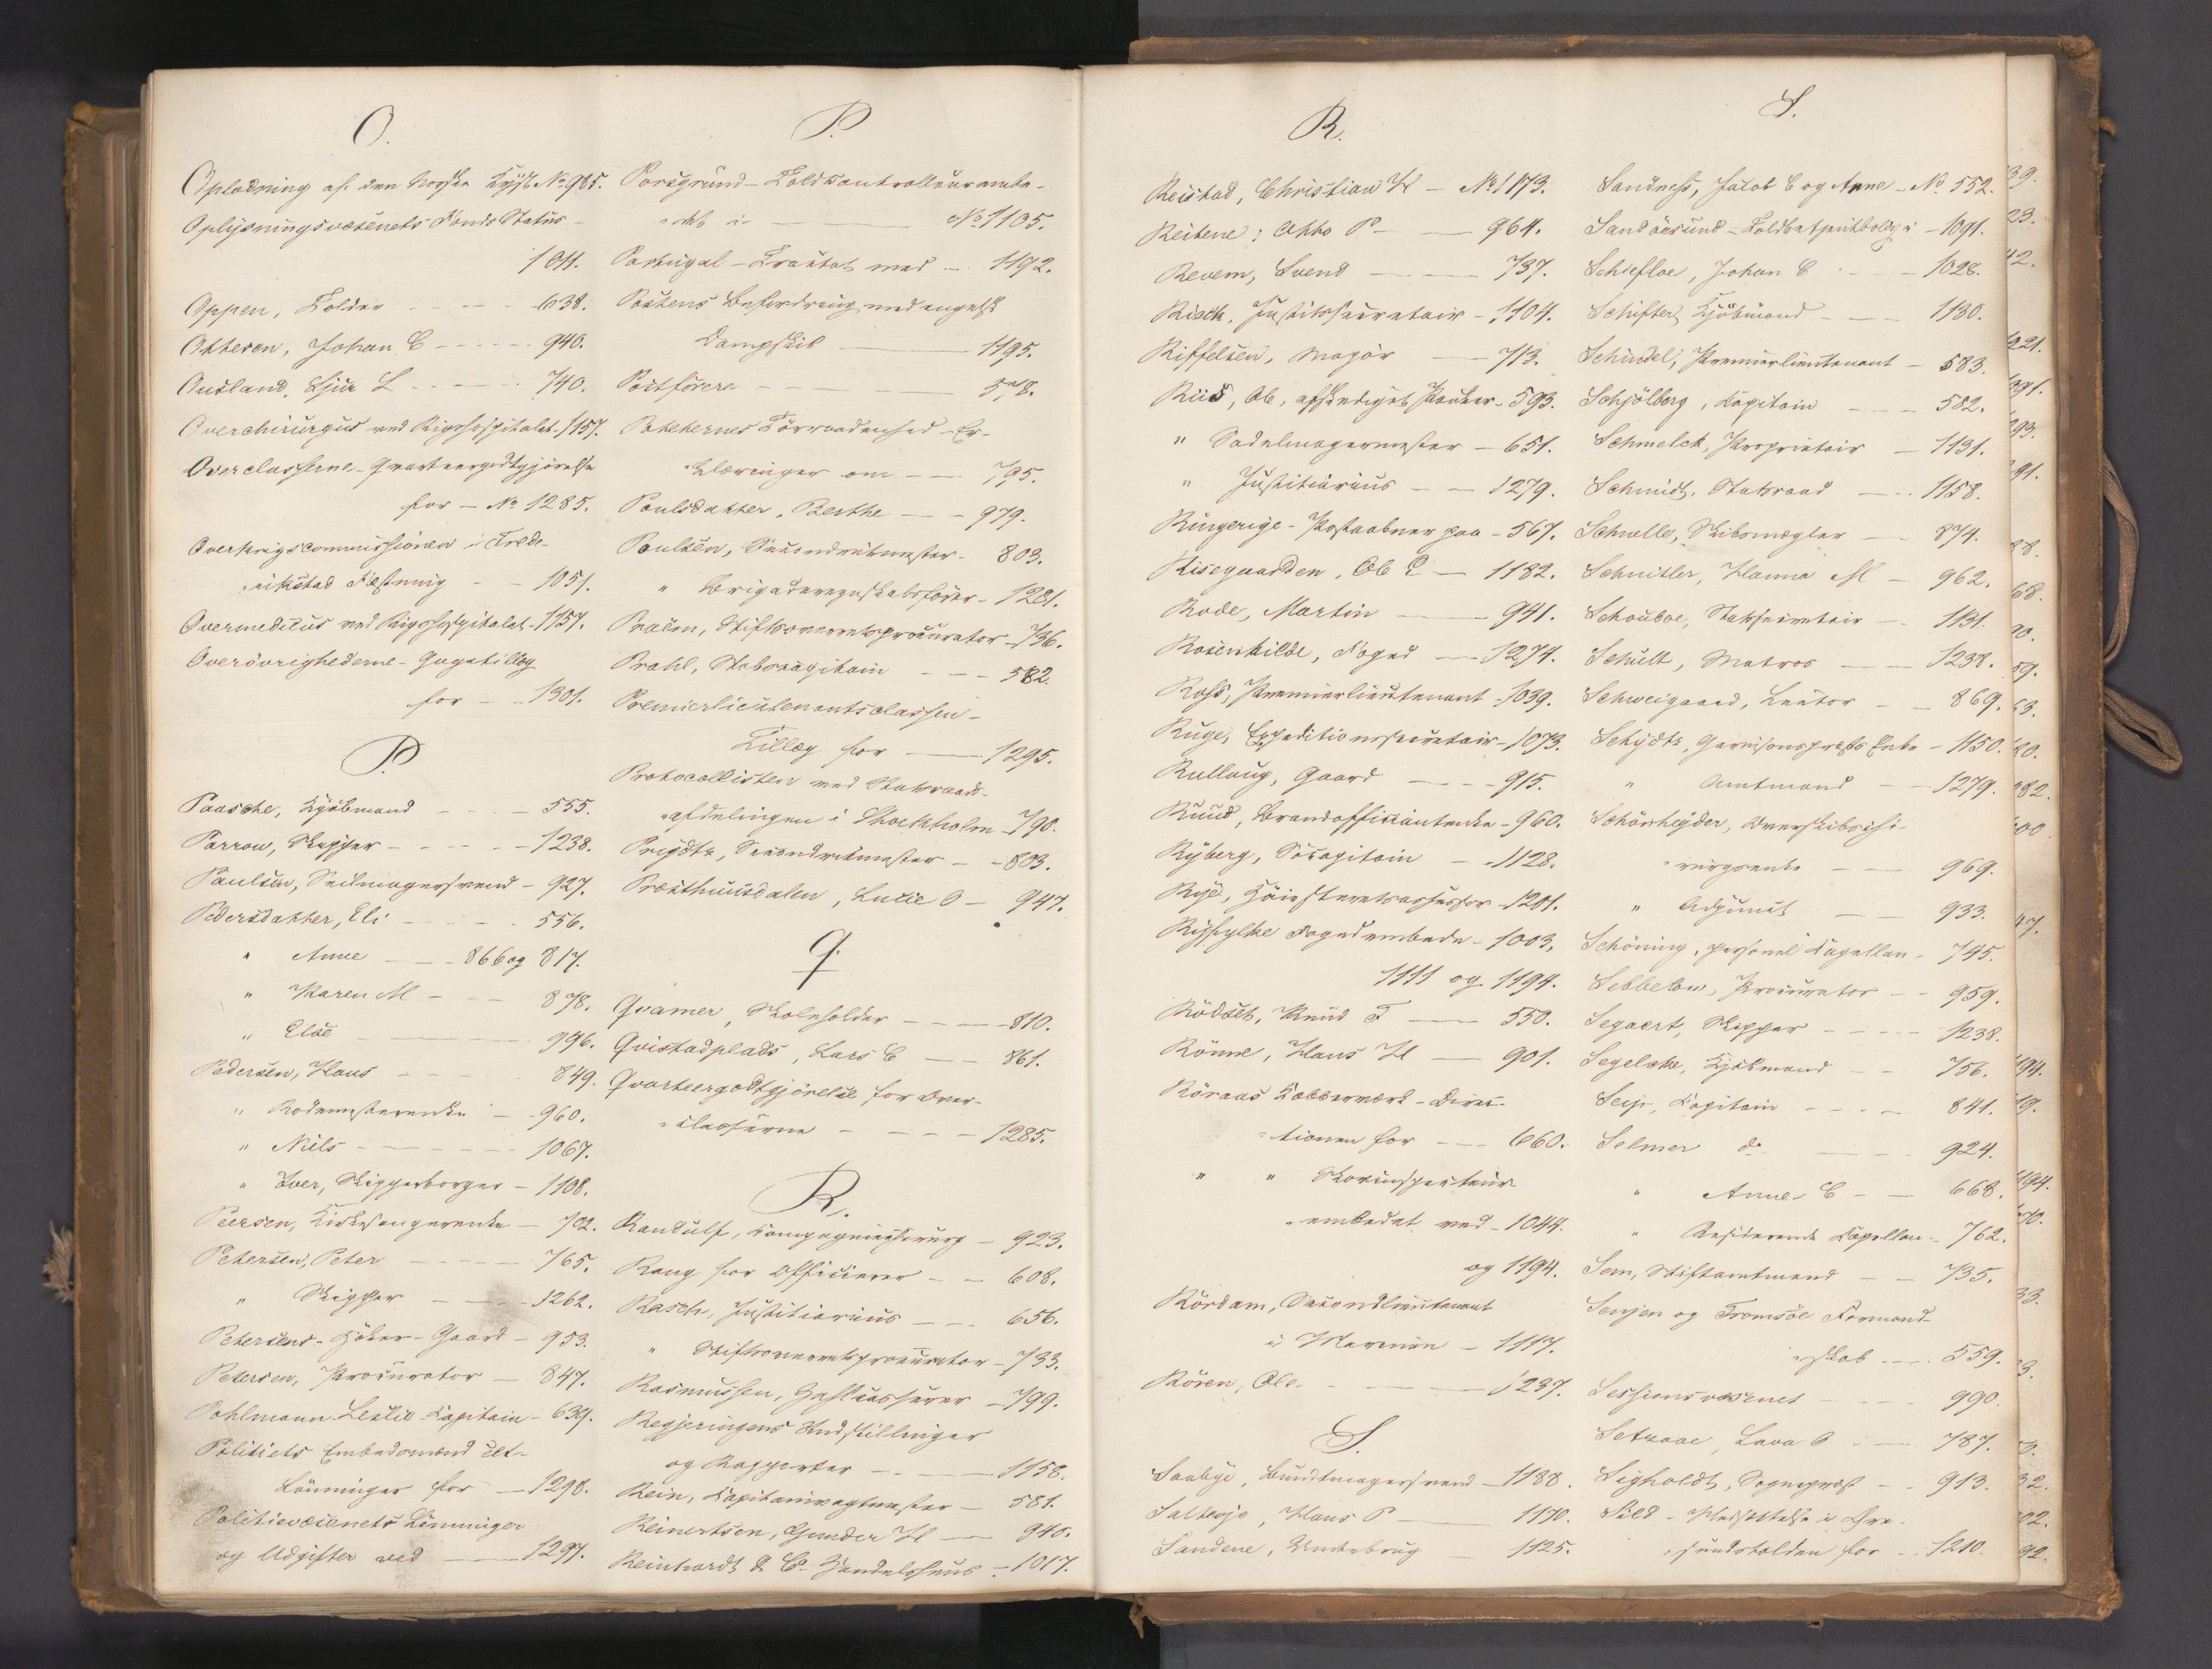 O.
Oplodning af den Norske Kyst No 985.
Oplysningsvæsenets Fonds Status -
1011.
Oppen, Tolder - - - 638.
Ottesen, Johan C - - - - - 940.
Ousland, Gjur L - - - - 740.
Overchirurgus ved Rigshospitalet - 1157.
Overclasserne - Qvarteergodtgjørelse
for - No 1285.
Overkrigscommissionen i Fred-
rikstad Fæstning - - 1051.
Overmedicus ved Rigshospitalet - 1157.
Overövrighederne - Gagetillæg
for - - 1301.
P.
Paasche, Kjöbmand - - - 555.
Parrow, Skipper - - - - - 1238.
Paulsen, Seilmagersvend - 927.
Pedersdatter, Eli - - - - 556.
" Anne - - - 866 og 817.
" Karen M - - - 878.
" Else 996.
Pedersen, Hans - - - - 849.
" Rodemesterenke - 960.
" Niels - - - - - - 1067.
" Iver, Skipperborger - 1108.
Peersen, Kirkesangerenke - 702.
Petersen, Peter - - - - - 765.
" Skipper - - - 1262.
Petersens - Höker - Gaard - 953.
Petersen, Procurator - 847.
Pohlmann Leslie Capitain - 639.
Politiets Embedsmænd ##-
Lönninger for - 1298.
Politievæsenets Lönninger
og Udgifter ved - 1297.
P.
Porsgrund - Toldkontrolleurembe-
det i - No 1105.
Portugal - Tractat med - 1192.
Postens Befordring med engelsk
Dampskib - 1195.
Postförere - 578.
Poteternes Forraadnelse - Er-
klæringer om - - 795.
Poulsdatter, Berthe - - 979.
Poulsen, Secondritmester - 803.
" Brigaderegnskabsförer - 1281.
Praëm, Stiftsoverretsprocurator - 736.
Prahl, Stabscapitain - - - 582.
Premierlieutenantsclassen -
Tillæg for - 1295.
Protocollisten ved Statsraads-
afdelingen i Stockholm - 790.
Prydtz, Secondritmester - - 803.
Præsthuusdalen, Lucie O - 947.
Q.
Qvamer, Skoleholder - - - - 810.
Qvistadplads, Lars C - - 861.
Qvarteergodtgjörelse for Over-
classerne - - - - 1285.
R.
Randulf, Compagniechirurg - 923.
Rang for Officierer - - 608.
Rasch, Justitiarius - - - 656.
" Stiftsoverretsprocurator - 733.
Rasmussen, Zahlcasserer - 799.
Regjeringens Indstillinger
og Rapporter - - 1158.
Rein, Capitainvagtmester - 581.
Reinertsen, Gunder H - 940.
Reinhardt & Co Handelshuus - 1017.
R.
Reistad, Christian H - No 1173.
Reitene, Otto P - - 964.
Revem, Svend - 737.
Riech, Justitssecretair - 1104.
Riffelsen, Major - 713.
Riis, Ole, afskediget Pauker - 593.
" Sadelmagermester - 651.
" Justitiarius - - 1279.
Ringerige - Postaabner paa - 567.
Risegaarden, Ole P - 1182.
Rode, Martin - 941.
Rosenkilde, Foged - 1274.
Ross, Premierlieutenant - 1039.
Ruge, Expeditionssecretair - 1073.
Rullaug, Gaard - - - 915.
Ruud, Brandofficiantenke - 960.
Ryberg, Söcapitain - 1128.
Rye, Höiesteretsassessor - 1201.
Ryfylke Fogedembede - 1003,
1111 og 1194.
Rödset, Knud T - 550.
Rönne, Hans H - 901.
Röraas Kobberværk - Direc-
tionen for - 660.
" " Skovinspecteur
embedet ved - 1044.
og 1194.
Rördam, Secondlieutenant
i Marinen - 1117.
Rören, Ole - 1237.
S.
Saabye, Bundtmagersvend - 1188.
Salteöe, Hans P - 1170.
Sandene, Underbrug 1125.
S.
Sandness, Jacob C og Anne - No 552.
Sandösund - Toldbetjentbolig i - 1091.
Schiefloe, Johan C - - 1028.
Schifter, Kjöbmand - - 1130.
Schindel, Premierlieutenant - 583.
Schjölberg, Capitain - - 582.
Schmelck, Proprietair - 1131.
Schmidt, Statsraad - 1158.
Schnelle, Skibsmægler - 874.
Schnitler, Hanna M - 962.
Schouboe, Statssecretair - 1131.
Schult, Matros - - 1238.
Schweigaard, Lector - - 869.
Schydtz, Garnisonspræsts Enke - 1150.
" Amtmand - - 1279.
Schönheyder, Overskibschi-
rurgenke - - 969.
" Adjunct - 933.
Schöning, personel Capellan - 745.
Sebbelow, Procurator - - 959.
Segaert, Skipper - - - - 1238.
Segelcke, Kjöbmand - - 756.
Seip, Capitain - - - - 841.
Selmer do - - - 924.
" Anne C - - 668.
" Residerende Capellan - 762.
Sem, Stiftamtmand - - 735.
Senjen og Tromsöe Formand-
skab - - - 559.
Sessionsvæsenet - - - - 990.
Setraae, Lava O - - 787.
Sigholdt, Sognepræst - - 913.
Sild - Nedsættelse i Öre-
sundstolden for - - 1210.